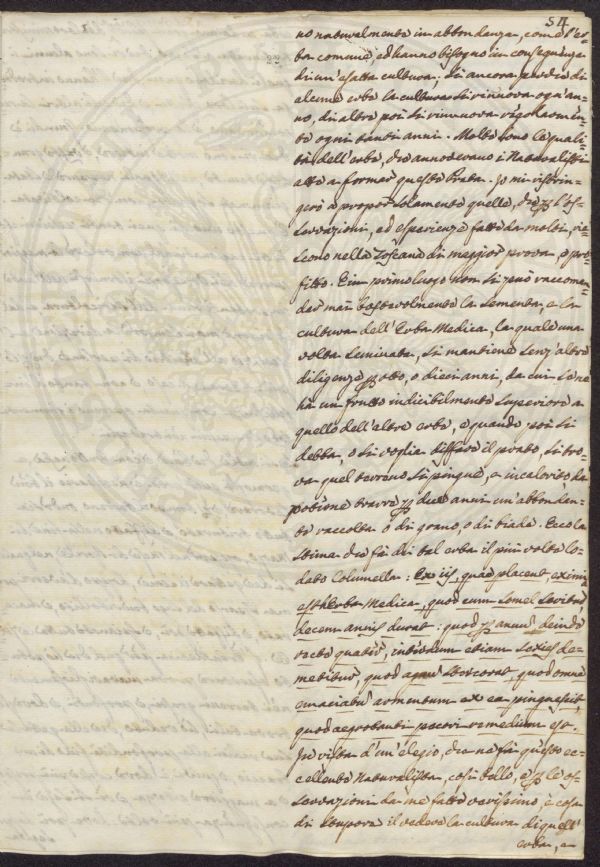 54
no naturalmente in abbondanza, come l'er-
ba comune, ed hanno bisogno in conseguenza
di un'esatta cultura; si ancora perche di
alcune erbe la cultura si rinnuova ogn'an-
no, di altre poi si rinnuova regolarmen-
te ogni tanti anni. Molte sono le quali-
tà dell'erbe, che annoverano i Naturalisti
atte a formar questo Prato. Io mi ristrin-
gerò a propor solamente quelle, che p l'os-
servazioni, ed esperienze fatte da molti, rie-
scono nella Toscana di maggior prova, e pro-
fitto. E in primo luogo non si può raccoman-
dar mai bastevolmente la sementa, e la
cultura dell'Erba Medica, la quale una
volta seminata, si mantiene senz'altre
diligenze p otto, o dieci anni, da cui se ne
hà un frutto indicibilmente superiore a
quello dell'altre erbe, e quando poi si
debba, o si voglia disfare il prato, si tro-
va quel terreno sì pingue, e incalorito, da
potione trarre p due anni un'abbondan-
te raccolta o di grano, o di biade. Ecco la
stima che fà di tal erba il più volte lo-
dato Columella: Ex iis, quae placent, eximia
est herba Medica, quod cum semel seritur,
decem annis durat: quod p annum deinde
recte quater, interdum etiam sexies de-
metitur, quod agrum stercorat, quod omne
emaciatum armentum ex ea pinguescit,
quod aegrotanti pecori remedium est.
In vista d'un'elogio, che ne fà questo ec-
cellente Naturalista, così bello, e p le os-
servazioni da me fatte verissimo, è cosa
di stupore il vedere la cultura di quest'
erba, e